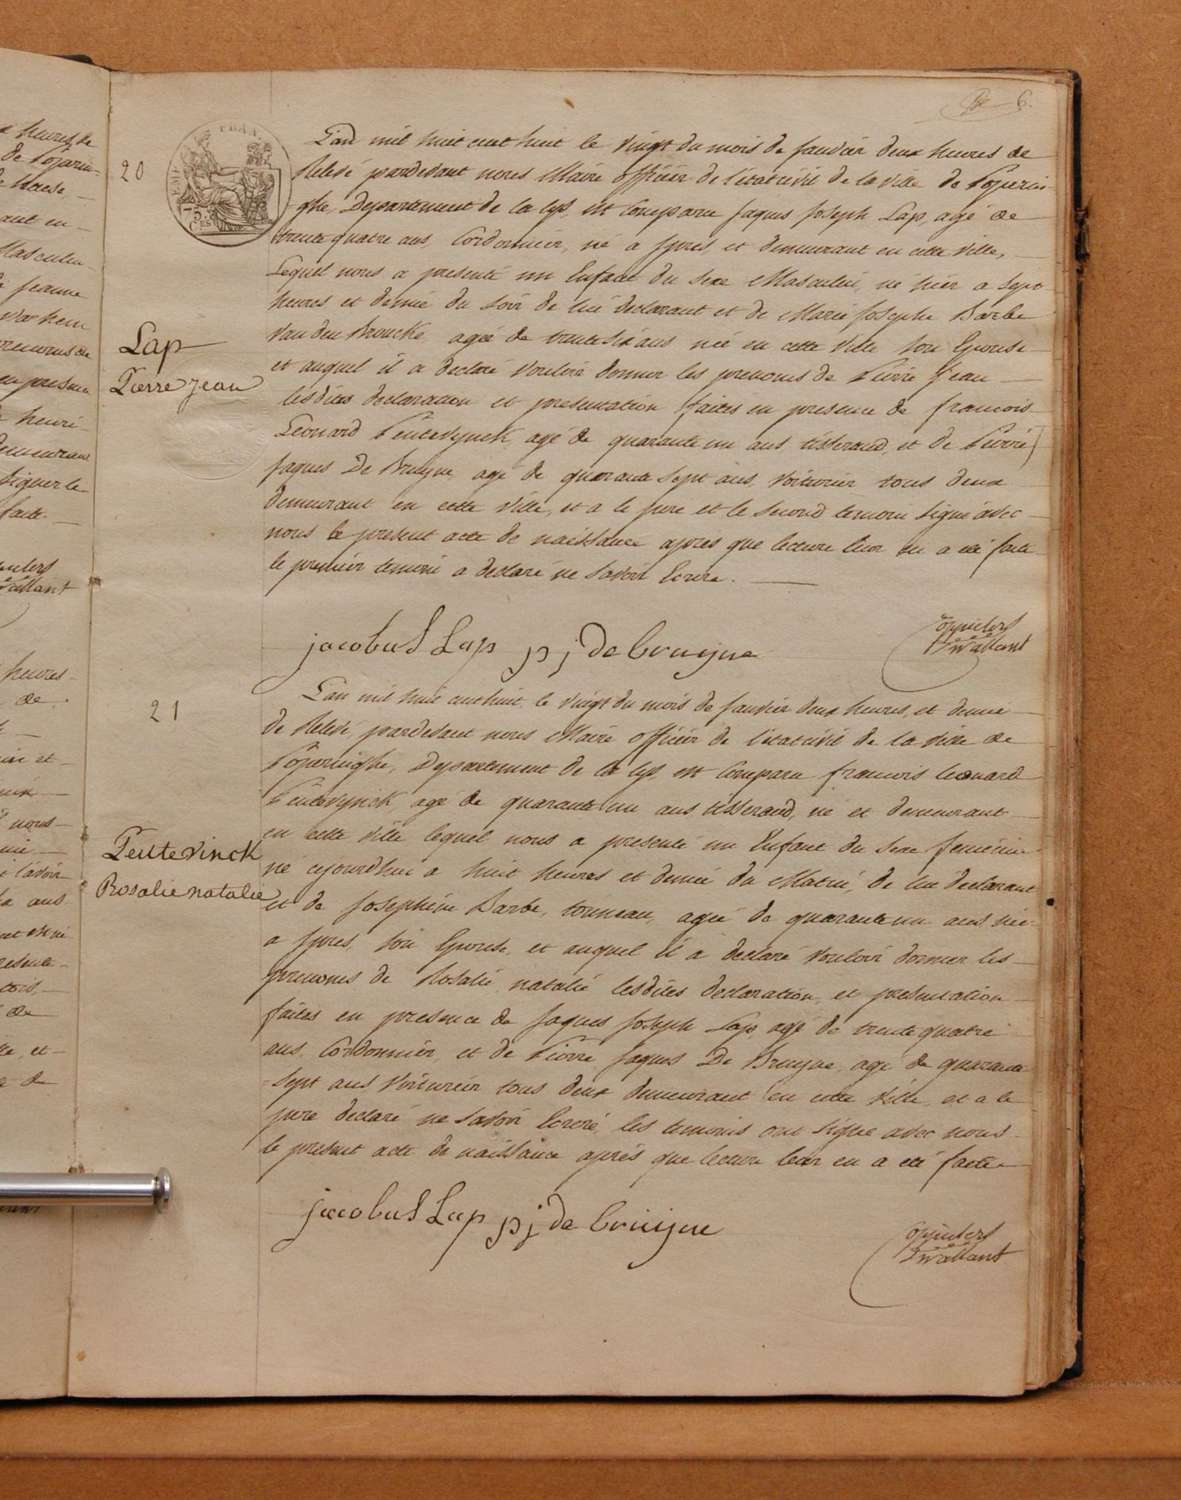 6.
20
L'an mil huit cent huit le vingt du mois de Janvier deux heures de
Relevé pardevant nous Maire officier de l'état civil de la ville de Poperin
ghe, Département de la Lys, est Comparu Jaques Joseph Lap, agé de
trente quatre ans, Cordonnier, né a Ypres, et demeurant en cette ville,
Lequel nous a presenté un Enfant du sexe Masculin, né hier a sept
heures et demie du soir de lui declarant et de Marie Josephe Barbe
Van den Broucke agée de trente six ans née en cette ville son Epouse
et auquel il a declaré vouloir donner les prenoms de Pierre Jean
lesdites declaration et presentation faites en presence de francois
Leonard Peutevynck agé de quarante un ans tisserand, et de Pierre
Jaques De Bruyne, agé de quarante sept ans, voiturier tous deux
demeurant en cette ville, et a le pere et le second temoin signé avec
nous le present acte de naissance apres que lecture leur en a été faite
le premier temoin a declaré ne savoir Ecrire.
Lap
Pierre Jean
jacobus Lap pj de bruijne
21
L'an mil huit cent huit, le vingt du mois de Janvier deux heures, et demie
de Relevé, pardevant nous Maire officier de l'état civil de la ville de
Poperinghe, Département de la Lys, est Comparu francois Leonard
Peutevynck agé de quarante un ans tisserand, né et demeurant
en cette ville lequel nous a presenté un Enfant du sexe feminin
né cejourdhui a huit heures et demie du Matin, de lui declarant
et de Josephine Barbe, tonneau, agée de quarante un ans née
a Ypres, son Epouse, et auquel il a declaré vouloir donner les
prenoms de Rosalie natalie lesdites declaration, et presentation
faites en presence de Jaques Joseph Lap, agé de trente quatre
ans, Cordonnier, et de Pierre Jaques De Bruyne, agé de quarante
sept ans voiturier tous deux demeurant en cette ville, et a le
pere declaré ne savoir Ecrire, les temoins ont signe avec nous
le present acte de naissance après que lecture leur en a été faite
Peutevinck
Rosalie natalie
jacobus Lap pj de bruijne